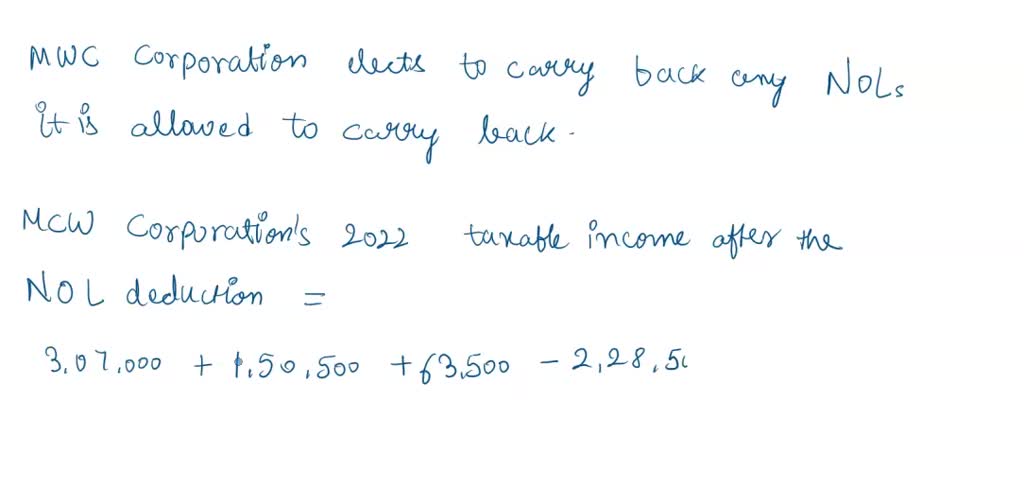 MWC Corporation elects to carry back any NOLs
it is allowed to carry back.
MCW Corporation's 2022 taxable income after the
NOL deduction =
3,07,000 + 1,50,500 + 63,500 - 2,28,50